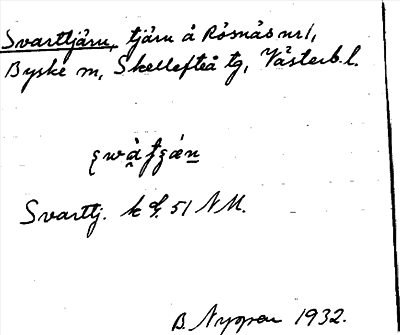 Svarttjärn, tjärn å Rösnäs nr 1,
Byske sn, Skellefteå tg, Västerb. l.
Svarttj. k bl. 51 NM.
B. Nyman 1932.